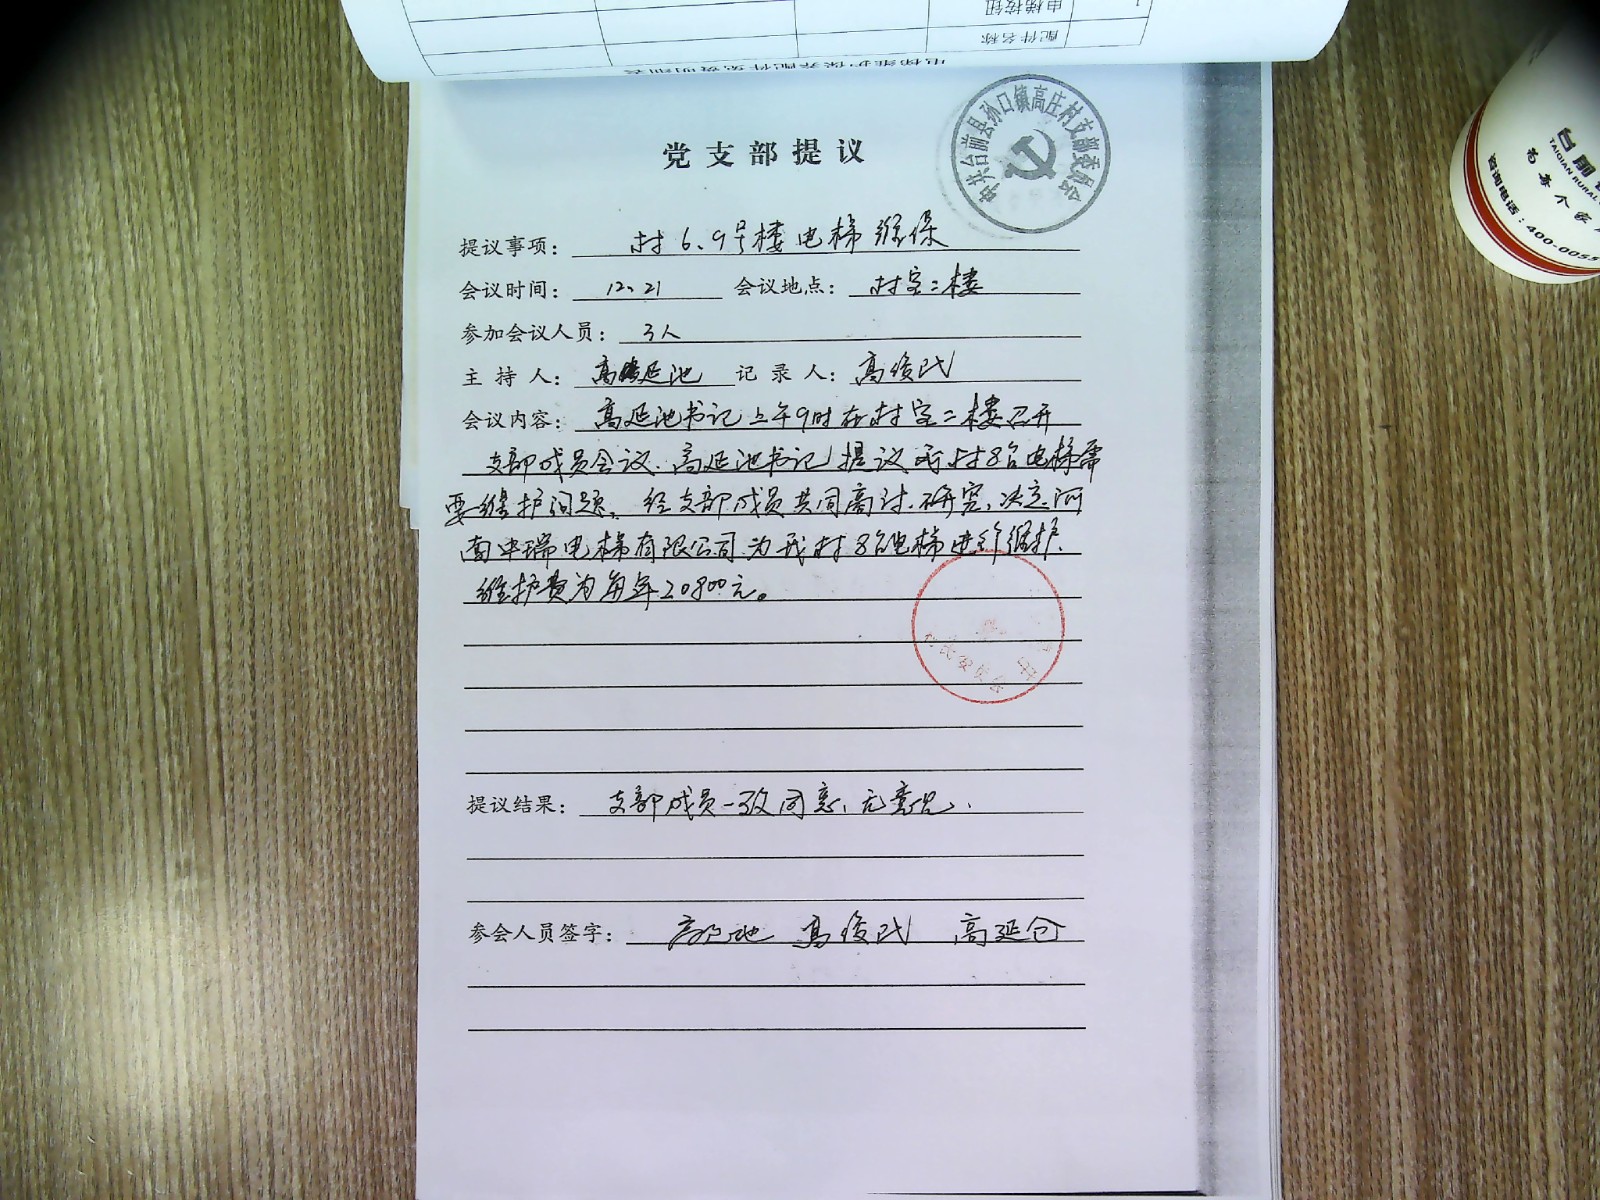 配件名称
电梯按钮
电梯维护保养配件免费明细表
中共台前县孙口镇高庄村支部委员会
党支部提议
提议事项: 村6、9号楼电梯维保
会议时间: 12、21 会议地点: 村室二楼
参加会议人员: 3人
主持人: 高延池 记录人: 高俊民
会议内容: 高延池书记上午9时在村室二楼召开
支部成员会议、高延池书记提议我村8台电梯需
要维护问题。经支部成员共同商讨、研究、决定河
南中瑞电梯有限公司为我村8台电梯进行维护、
维护费为每年20800元。
村民委员会
提议结果: 支部成员一致同意、无意见、
参会人员签字: 高延池 高俊民 高延仓
台前
TAIQIAN RURAL
咨询电话:400-0055